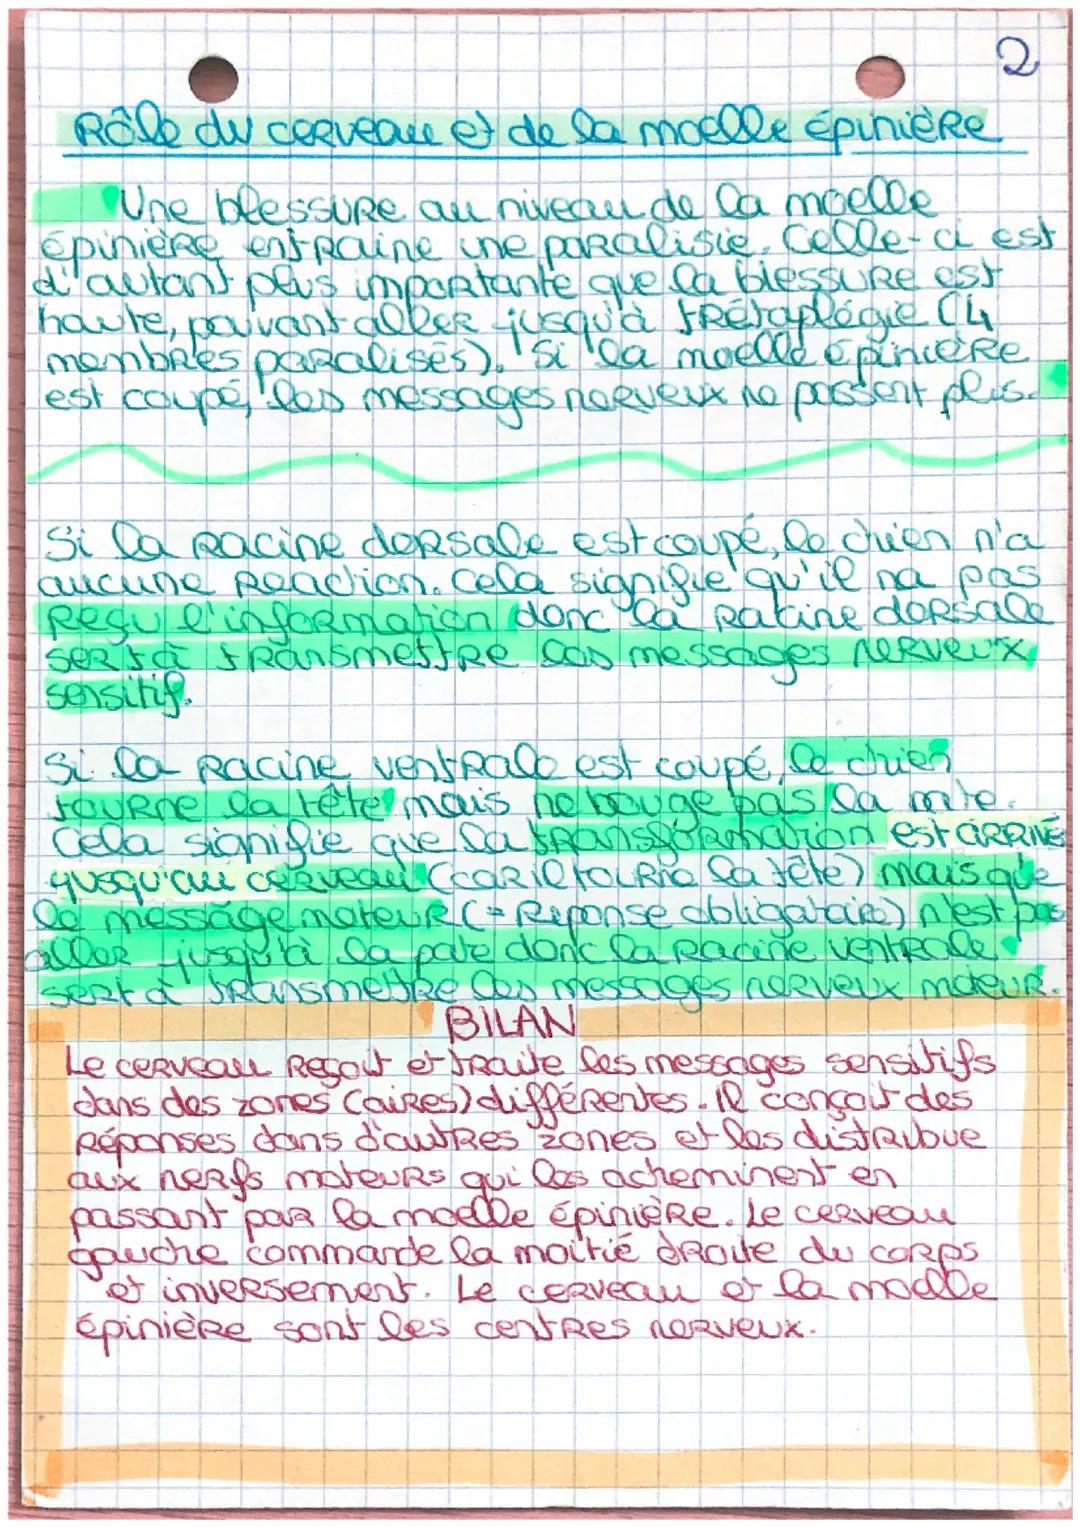 2
Rôle du cerveau et de la moelle épinière
Une blessure au niveau de la moelle
épinière entraine une paralisie. Celle-ci est
d'autant plus importante que la blessure est
haute, pouvant aller jusqu'à trétaplégie (4
membres paralisés). Si la moelle épinière
est coupé, les messages nerveux ne passent plus.
Si la racine dorsale est coupé, le chien n'a
aucune reaction. Cela signifie qu'il na pas
reçu l'information donc la racine dorsale
sert à transmettre les messages nerveux
sensitif.
Si la racine ventrale est coupé, le chien
tourne la tête mais ne bouge pas la
Cela signifie que la transformation est arrivé
jusqu'au cerveau (car il tourne la tête) mais que
le message moteur (= Reponse obligatoire) n'est pas
aller jusqu'à la pate donc la racine ventrale
sert à transmettre les messages nerveux moteur.
BILAN
Le cerveau reçoit et traite les messages sensitifs
dans des zones (aires) différentes. Il conçoit des
réponses dans d'autres zones et les distribue
aux nerfs moteurs qui les acheminent en
passant par la moelle épinière. Le cerveau
gauche commande la moitié droite du corps
et inversement. Le cerveau et la moelle
épinière sont les centres nerveux.